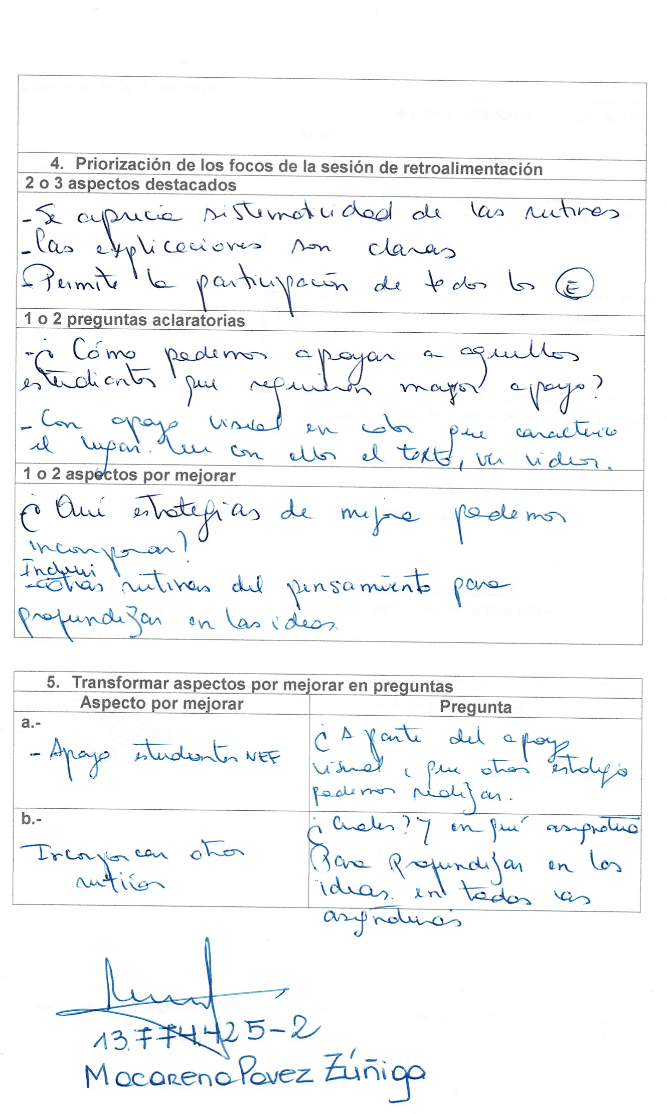 4. Priorización de los focos de la sesión de retroalimentación
2 o 3 aspectos destacados
- Se aprecia sistematicidad de las rutinas
- Las explicaciones son claras
- Permite la participación de todos los E
1 o 2 preguntas aclaratorias
- ¿Cómo podemos apoyar a aquellos
estudiantes que requieren mayor apoyo?
- Con apoyo visual en color que caracterice
el lugar. Leer con ellos el texto, ver videos.
1 o 2 aspectos por mejorar
¿Qué estrategias de mejora podemos
incorporar?
Incluir
- otras rutinas del pensamiento para
profundizar en las ideas.
5. Transformar aspectos por mejorar en preguntas
Aspecto por mejorar
Pregunta
a.-
- Apoyo estudiantes
¿A parte del apoyo
visual, que otras estrategias
podemos realizar.
b.-
Incorporar otras
rutinas
¿Cuales? Y en qué asignatura
Para profundizar en las
ideas. en todas las
asignaturas
13.774.425-2
Macarena Pavez Zúñiga